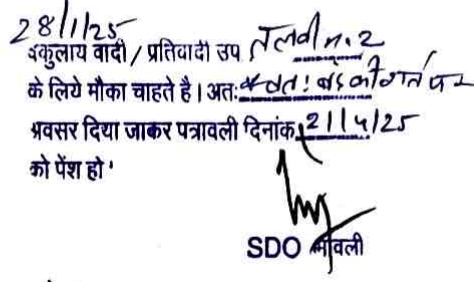 28/1/25
वकुलाय वादी / प्रतिवादी उप तलवी न. 2
के लिये मौका चाहते है। अतः
अवसर दिया जाकर पत्रावली दिनांक 21/4/25
को पेंश हो '
SDO मावली